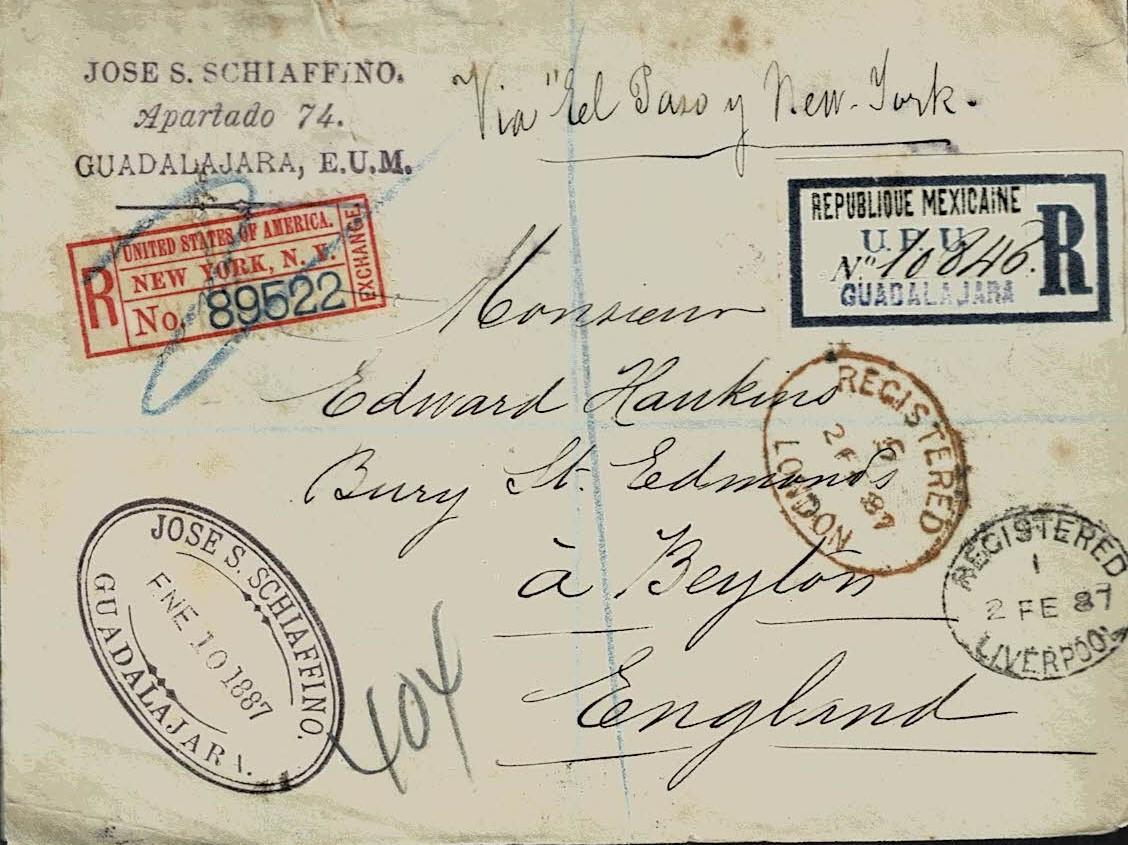 JOSE S. SCHIAFFINO.
Apartado 74.
GUADALAJARA, E.U.M.
Via "El Paso y New-York.
R
UNITED STATES OF AMERICA.
NEW YORK, N. Y.
No. 89522
EXCHANGE.
REPUBLIQUE MEXICAINE
U. P. U.
N.º 10846.
GUADALAJARA
R
Monsieur
Edward Hawkins
Bury St. Edmonds
à Beyton
England
REGISTERED
2 FE 87
LONDON
REGISTERED
1
2 FE 87
LIVERPOOL
JOSE S. SCHIAFFINO.
ENE 10 1887
GUADALAJARA.
404